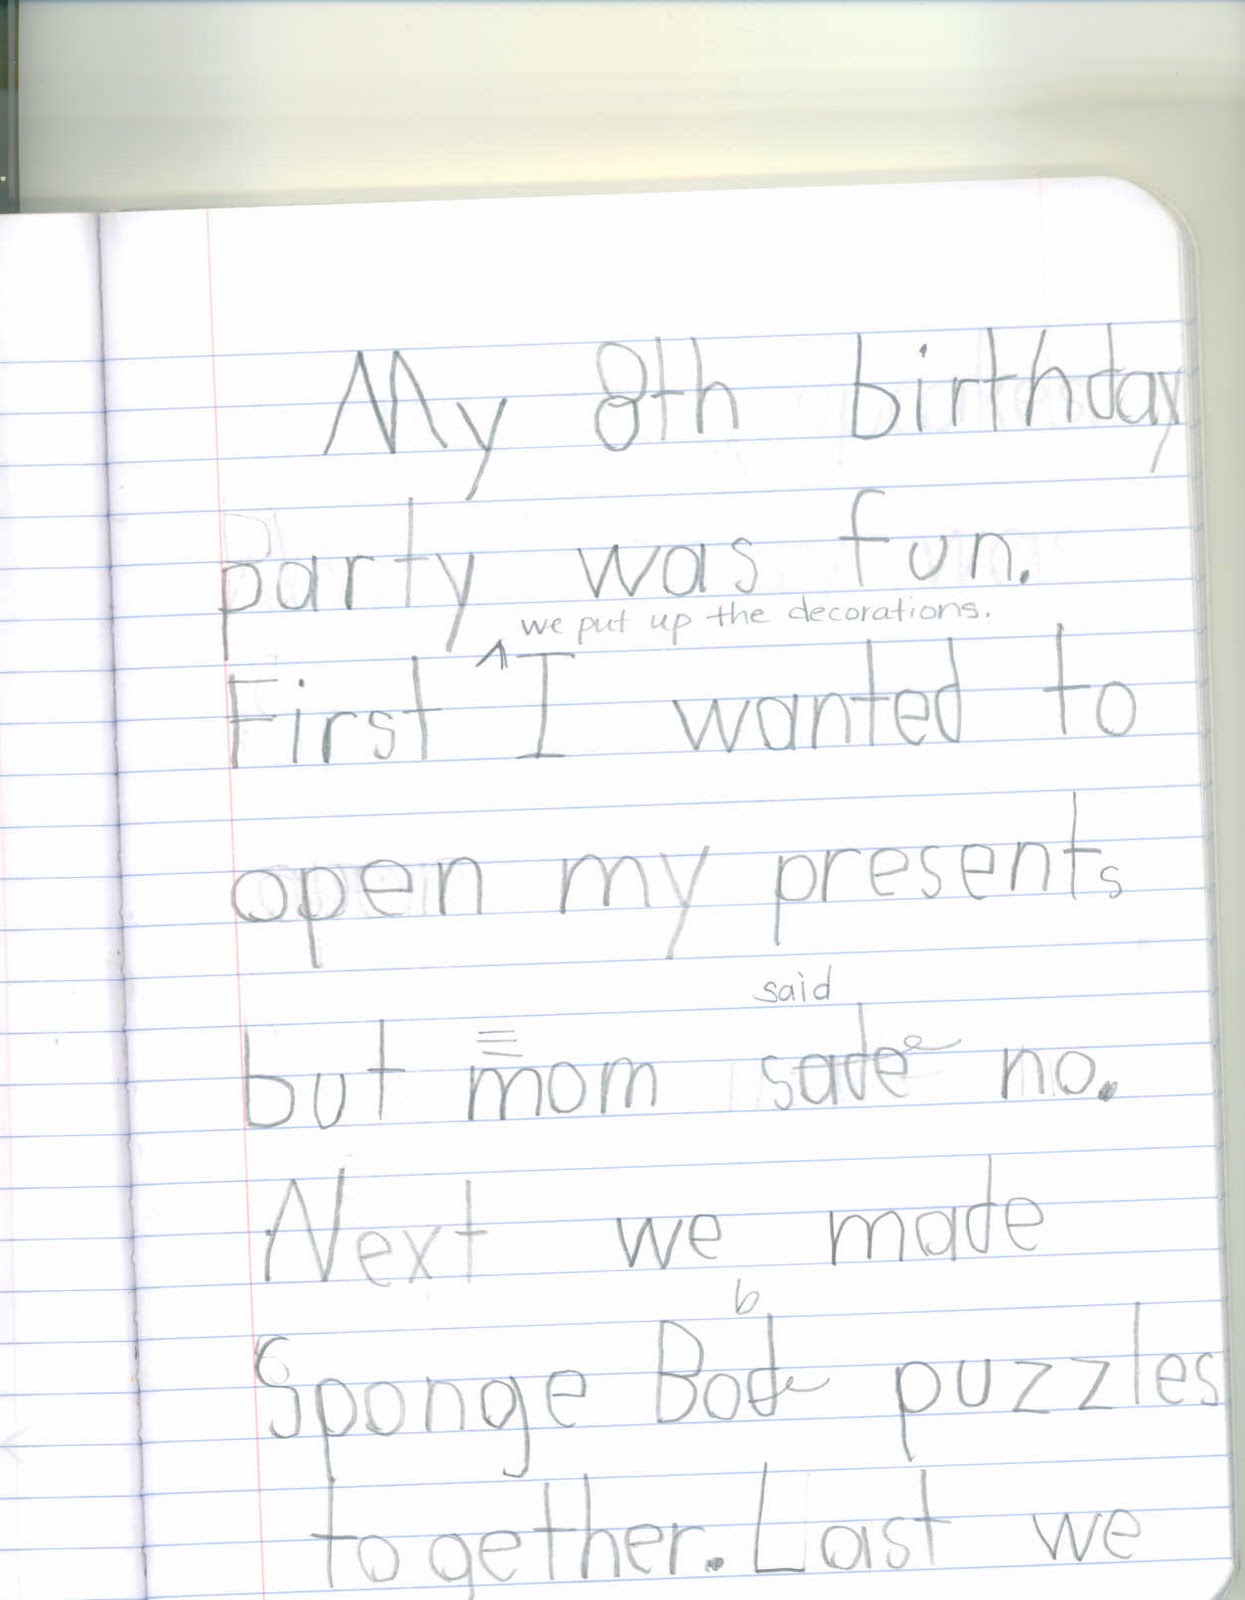 My 8th birthday
party was fun.
we put up the decorations.
First ^ I wanted to
open my presents
said
but mom sade no.
Next we made
b
Sponge Bod puzzles
together. Last we